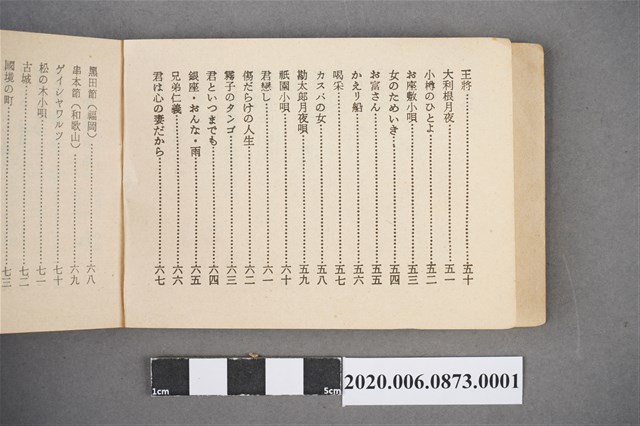 王將…………五十
大利根月夜…………五一
小樽のひとよ…………五二
お座敷小唄…………五三
女のためいき…………五四
お富さん…………五五
かえり船…………五六
喝采…………五七
カスバの女…………五八
勘太郎月夜唄…………五九
祇園小唄…………六十
君戀し…………六一
傷だらけの人生…………六二
霧子のタンゴ…………六三
君といつまでも…………六四
銀座・おんな・雨…………六五
兄弟仁義…………六六
君は心の妻だから…………六七
黑田節（福岡）…………六八
串本節（和歌山）…………六九
ゲイシャワルツ…………七十
松の木小唄…………七一
古城…………七二
國境の町…………七三
1cm
5cm
2020.006.0873.0001